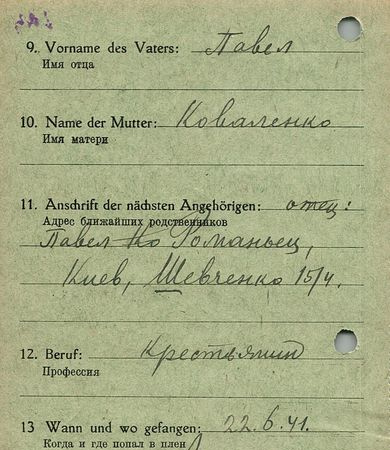 9. Vorname des Vaters: Павел
Имя отца
10. Name der Mutter: Коваленко
Имя матери
11. Anschrift der nächsten Angehörigen: отец:
Адрес ближайших родственников
Павел Ко Романьец,
Киев, Шевченко 15/4.
12. Beruf: Крестьянин
Профессия
13 Wann und wo gefangen: 22.6.41.
Когда и где попал в плен